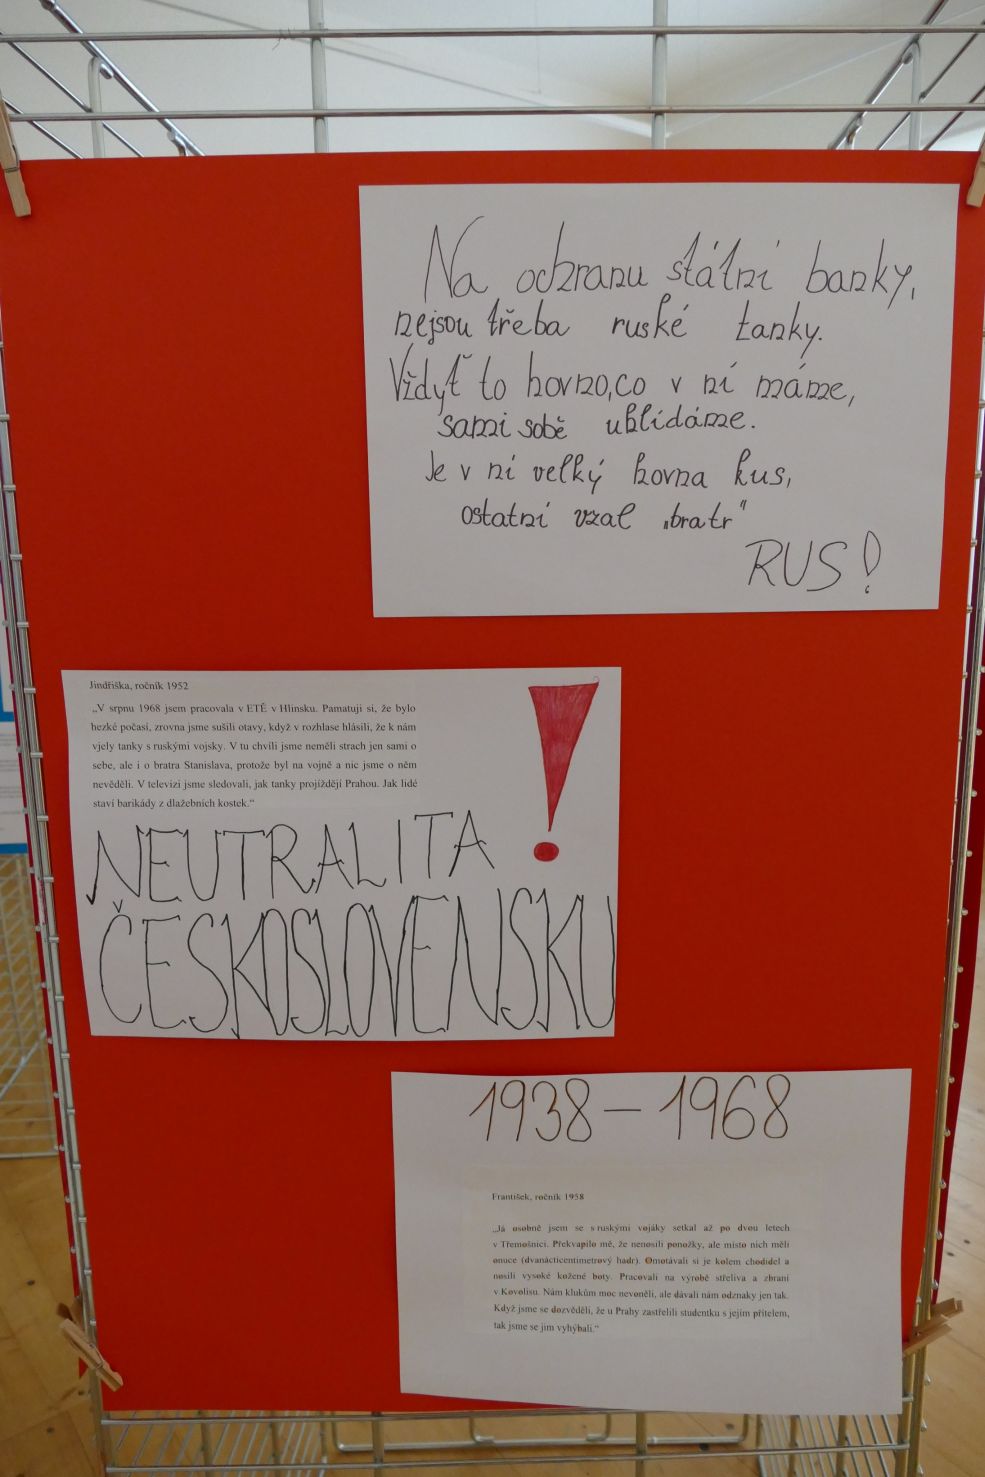 Na ochranu státní banky,
nejsou třeba ruské tanky.
Vždyť to hovno,co v ní máme,
sami sobě uhlídáme.
Je v ní velký hovna kus,
ostatní vzal „bratr"
RUS!
Jindřiška, ročník 1952
„V srpnu 1968 jsem pracovala v ETĚ v Hlinsku. Pamatuji si, že bylo
hezké počasí, zrovna jsme sušili otavy, když v rozhlase hlásili, že k nám
vjely tanky s ruskými vojsky. V tu chvíli jsme neměli strach jen sami o
sebe, ale i o bratra Stanislava, protože byl na vojně a nic jsme o něm
nevěděli. V televizi jsme sledovali, jak tanky projíždějí Prahou. Jak lidé
staví barikády z dlažebních kostek.“
NEUTRALITA !
ČESKOSLOVENSKU
1938 – 1968
František, ročník 1958
„Já osobně jsem se s ruskými vojáky setkal až po dvou letech
v Třemošnici. Překvapilo mě, že nenosili ponožky, ale místo nich měli
onuce (dvanácticentimetrový hadr). Omotávali si je kolem chodidel a
nosili vysoké kožené boty. Pracovali na výrobě střeliva a zbraní
v Kovolisu. Nám klukům moc nevoněli, ale dávali nám odznaky jen tak.
Když jsme se dozvěděli, že u Prahy zastřelili studentku s jejím přítelem,
tak jsme se jim vyhýbali.“